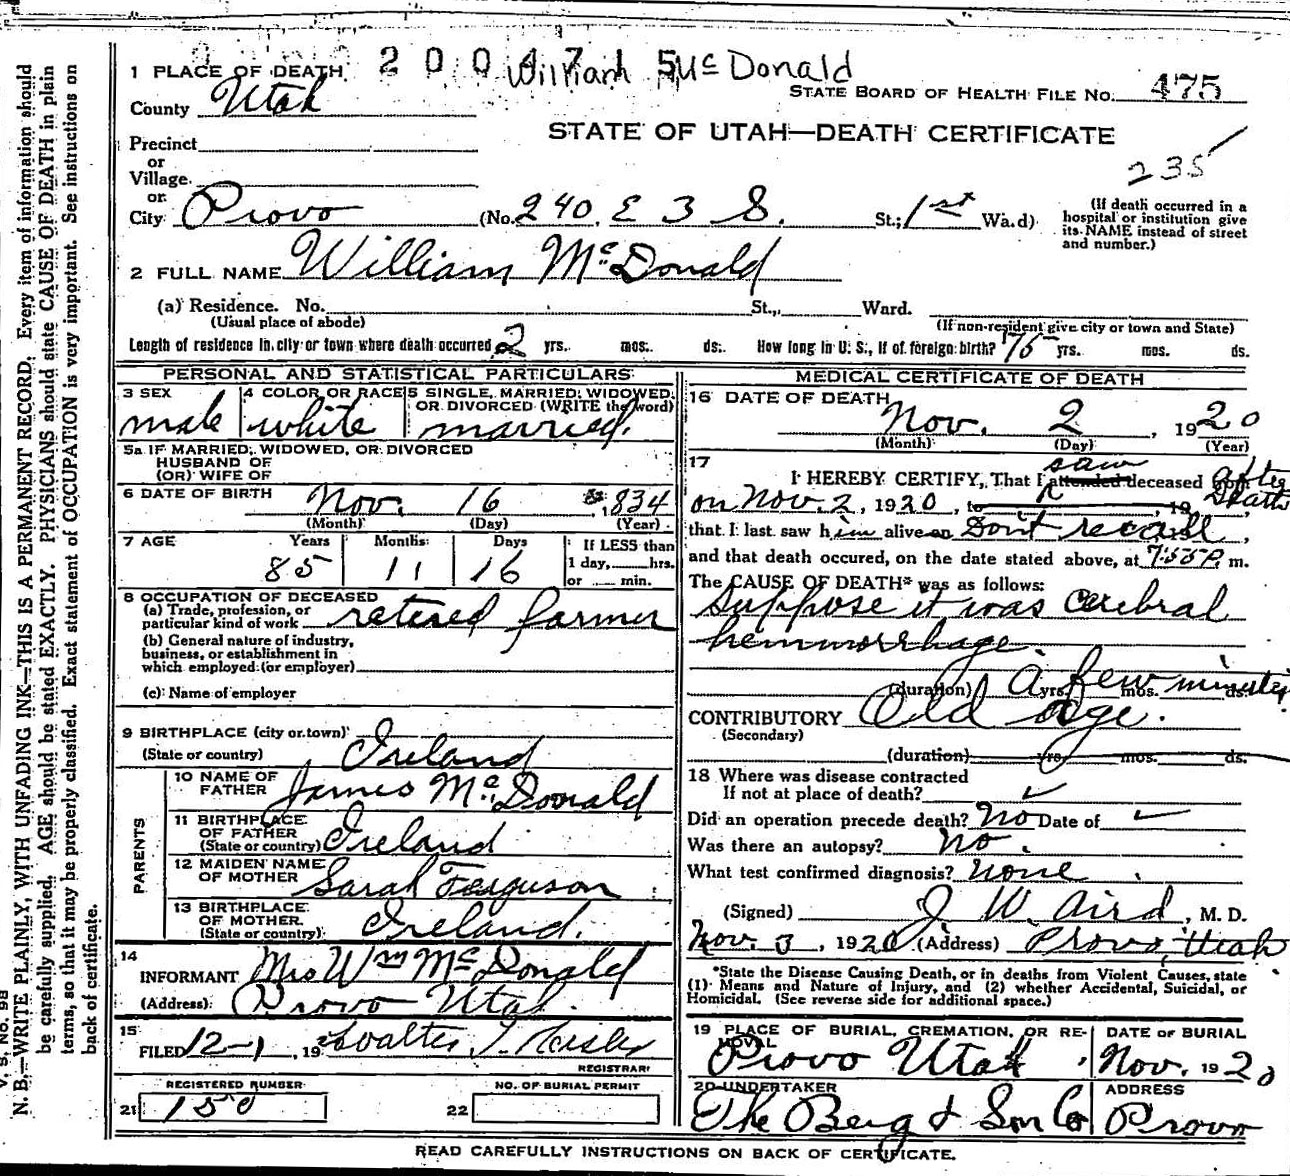 2 0 0 4 7 William McDonald
1 PLACE OF DEATH
County Utah
STATE BOARD OF HEALTH FILE NO. 475
STATE OF UTAH—DEATH CERTIFICATE
235
Precinct
or
Village
or
City Provo (No. 240. E 3 S. St.; 1st Wa.d)
(If death occurred in a
hospital or institution give
its NAME instead of street
and number.)
2 FULL NAME William McDonald
(a) Residence. No. St., Ward.
(Usual place of abode) (If non-resident give city or town and State)
Length of residence in city or town where death occurred 2 yrs. mos. ds. How long in U. S., if of foreign birth? 75 yrs. mos. ds.
PERSONAL AND STATISTICAL PARTICULARS
3 SEX male
4 COLOR OR RACE white
5 SINGLE, MARRIED, WIDOWED,
OR DIVORCED (WRITE the word)
married.
5a IF MARRIED, WIDOWED, OR DIVORCED
HUSBAND OF
(OR) WIFE OF
6 DATE OF BIRTH Nov. 16 834
(Month) (Day) (Year)
7 AGE Years Months Days If LESS than
85 11 16 1 day, hrs.
or min.
8 OCCUPATION OF DECEASED
(a) Trade, profession, or
particular kind of work retered farmer
(b) General nature of industry,
business, or establishment in
which employed (or employer)
(c) Name of employer
9 BIRTHPLACE (city or town)
(State or country) Ireland
PARENTS
10 NAME OF
FATHER James McDonald
11 BIRTHPLACE
OF FATHER
(State or country) Ireland
12 MAIDEN NAME
OF MOTHER Sarah Ferguson
13 BIRTHPLACE
OF MOTHER
(State or country) Ireland.
14
INFORMANT Mrs Wm McDonald
(Address) Provo Utah.
15
FILED 12-1, 19 Walter J.
REGISTRAR
REGISTERED NUMBER
21 150
NO. OF BURIAL PERMIT
22
MEDICAL CERTIFICATE OF DEATH
16 DATE OF DEATH
Nov. 2, 1920
(Month) (Day) (Year)
17
I HEREBY CERTIFY, That I attended saw deceased after death
on Nov. 2, 1920, to 19
that I last saw him alive on Don't recall,
and that death occured, on the date stated above, at 7:55 P. m.
The CAUSE OF DEATH* was as follows:
Suppose it was cerebral
hemmorrhage.
(duration) A yrs. few mos. minutes ds.
CONTRIBUTORY Old age.
(Secondary)
(duration) yrs. mos. ds.
18 Where was disease contracted
If not at place of death? ✓
Did an operation precede death? No Date of ✓
Was there an autopsy? No.
What test confirmed diagnosis? None.
(Signed) J W. Aird, M. D.
Nov. 3, 1920 (Address) Provo, Utah
*State the Disease Causing Death, or in deaths from Violent Causes, state
(1) Means and Nature of Injury, and (2) whether Accidental, Suicidal, or
Homicidal. (See reverse side for additional space.)
19 PLACE OF BURIAL, CREMATION, OR RE-
MOVAL
Provo Utah
DATE OF BURIAL
Nov. 1920
20 UNDERTAKER
The Berg & Son Co
ADDRESS
Provo
READ CAREFULLY INSTRUCTIONS ON BACK OF CERTIFICATE.
V. S. No. 98
N. B.—WRITE PLAINLY, WITH UNFADING INK—THIS IS A PERMANENT RECORD. Every item of information should
be carefully supplied. AGE should be stated EXACTLY. PHYSICIANS should state CAUSE OF DEATH in plain
terms, so that it may be properly classified. Exact statement of OCCUPATION is very important. See instructions on
back of certificate.